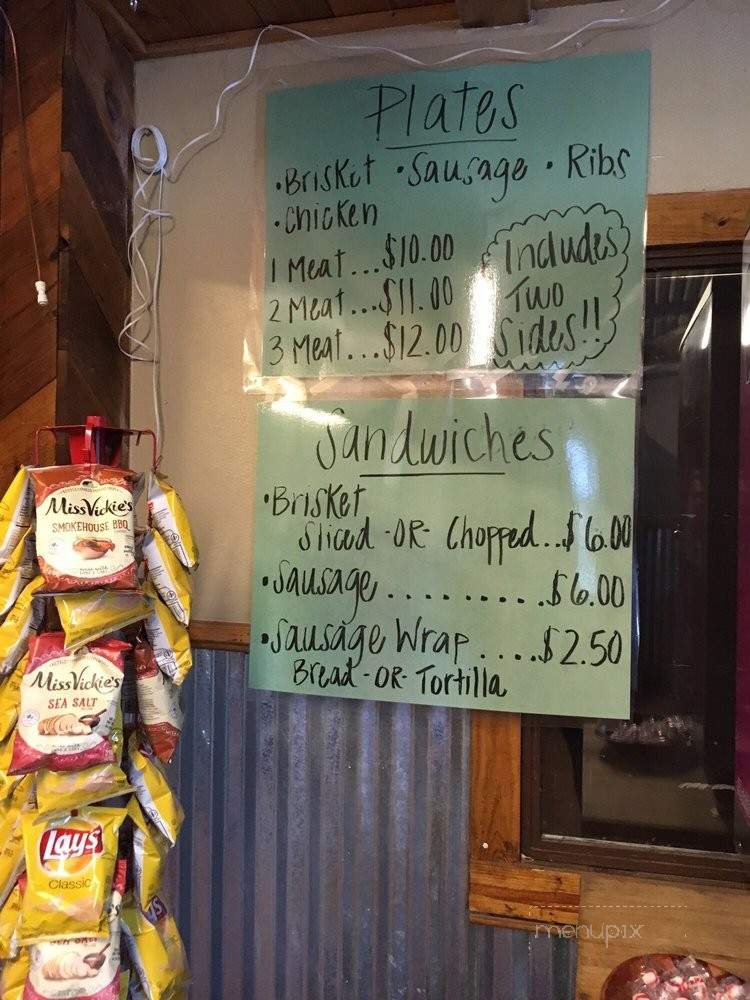 Plates
•Brisket •Sausage • Ribs
•Chicken
1 Meat...$10.00
2 Meat...$11.00
3 Meat...$12.00
Includes
Two
Sides!!
Sandwiches
•Brisket
Sliced -OR- Chopped...$6.00
•Sausage..........$6.00
•Sausage Wrap....$2.50
Bread -OR- Tortilla
MissVickie's
SMOKEHOUSE BBQ
MissVickie's
SEA SALT
Lay's
Classic
SEA SALT
menupix